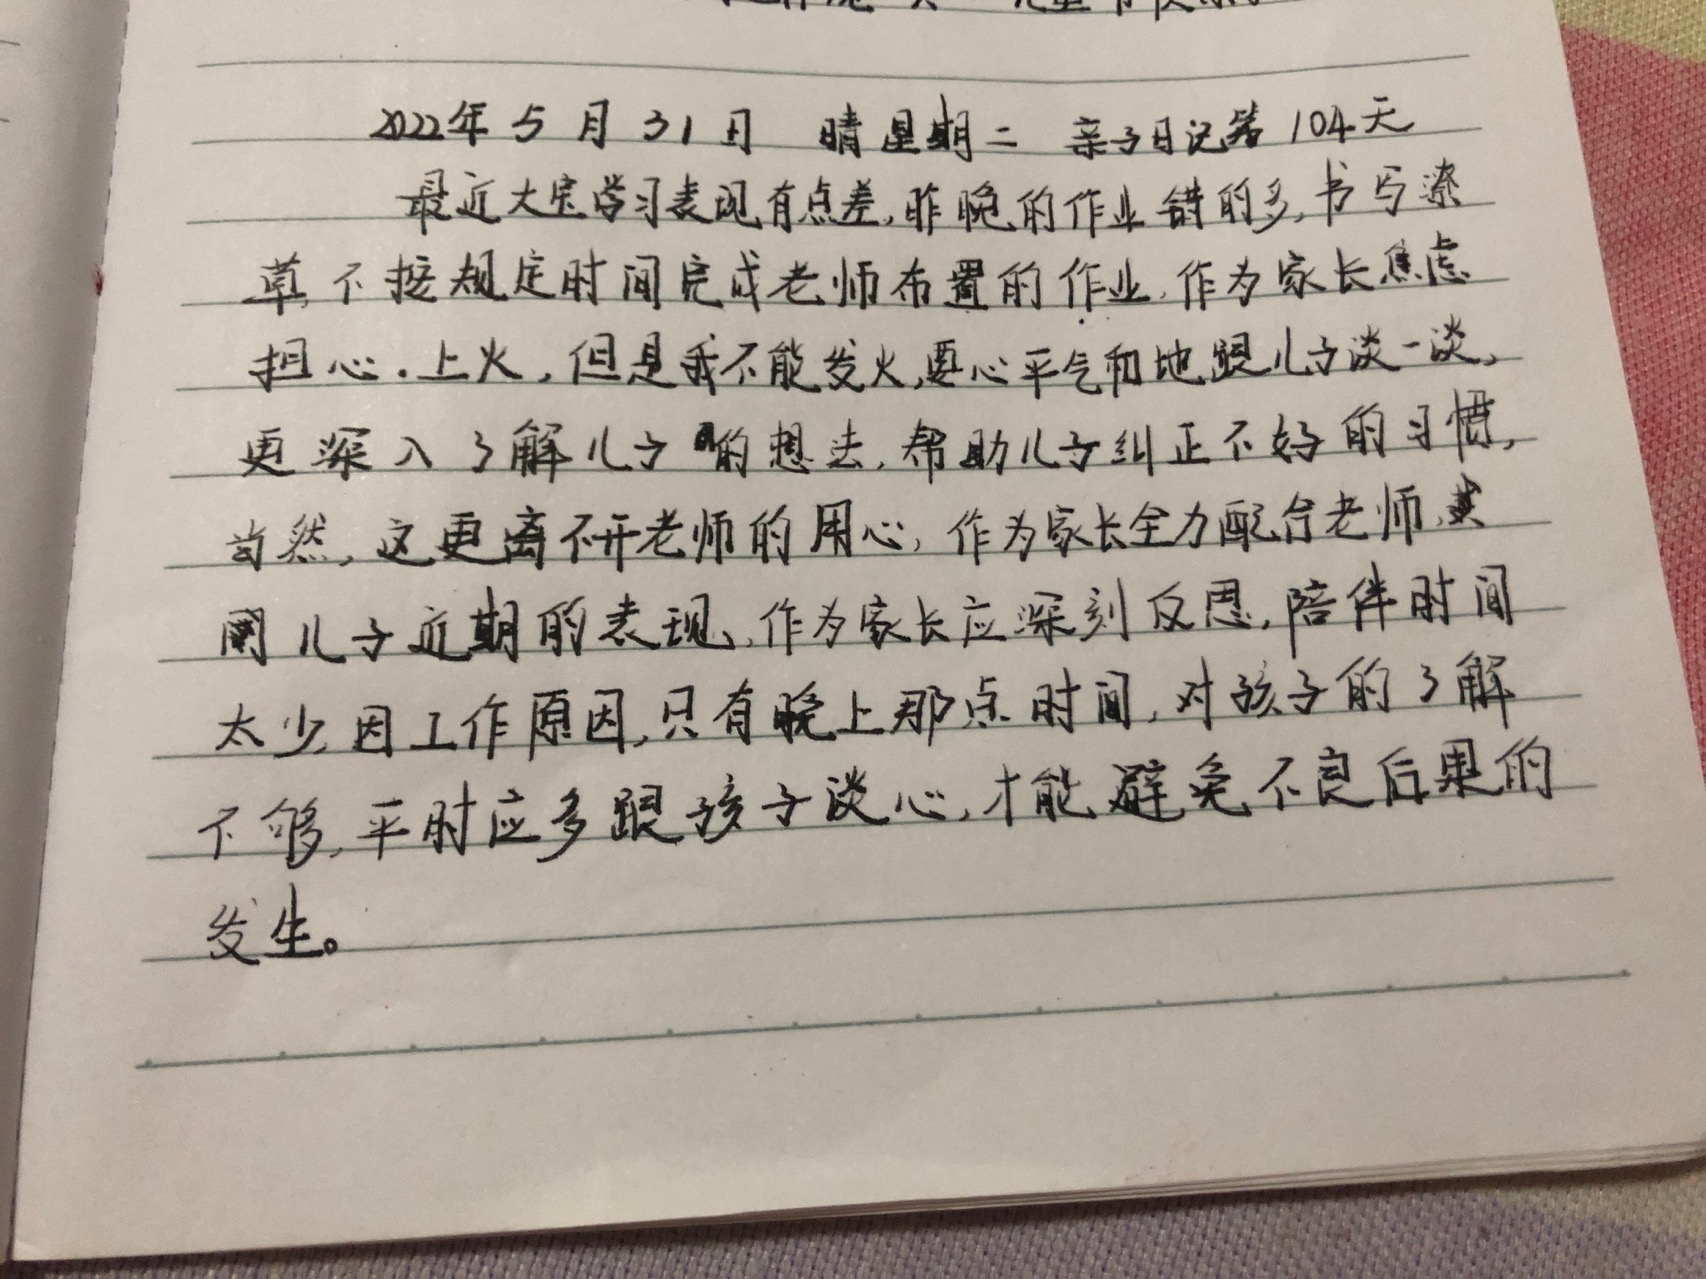 2022年5月31日 晴 星期二 亲子日记第104天
最近大宝学习表现有点差,昨晚的作业错的多,书写潦
草,不按规定时间完成老师布置的作业,作为家长焦虑
担心.上火,但是我不能发火,要心平气和地跟儿子谈一谈,
更深入了解儿子的想法,帮助儿子纠正不好的习惯,
当然,这更离不开老师的用心,作为家长全力配合老师,
儿子近期的表现,作为家长应深刻反思,陪伴时间
太少,因工作原因,只有晚上那点时间,对孩子的了解
不够,平时应多跟孩子谈心,才能避免不良后果的
发生。